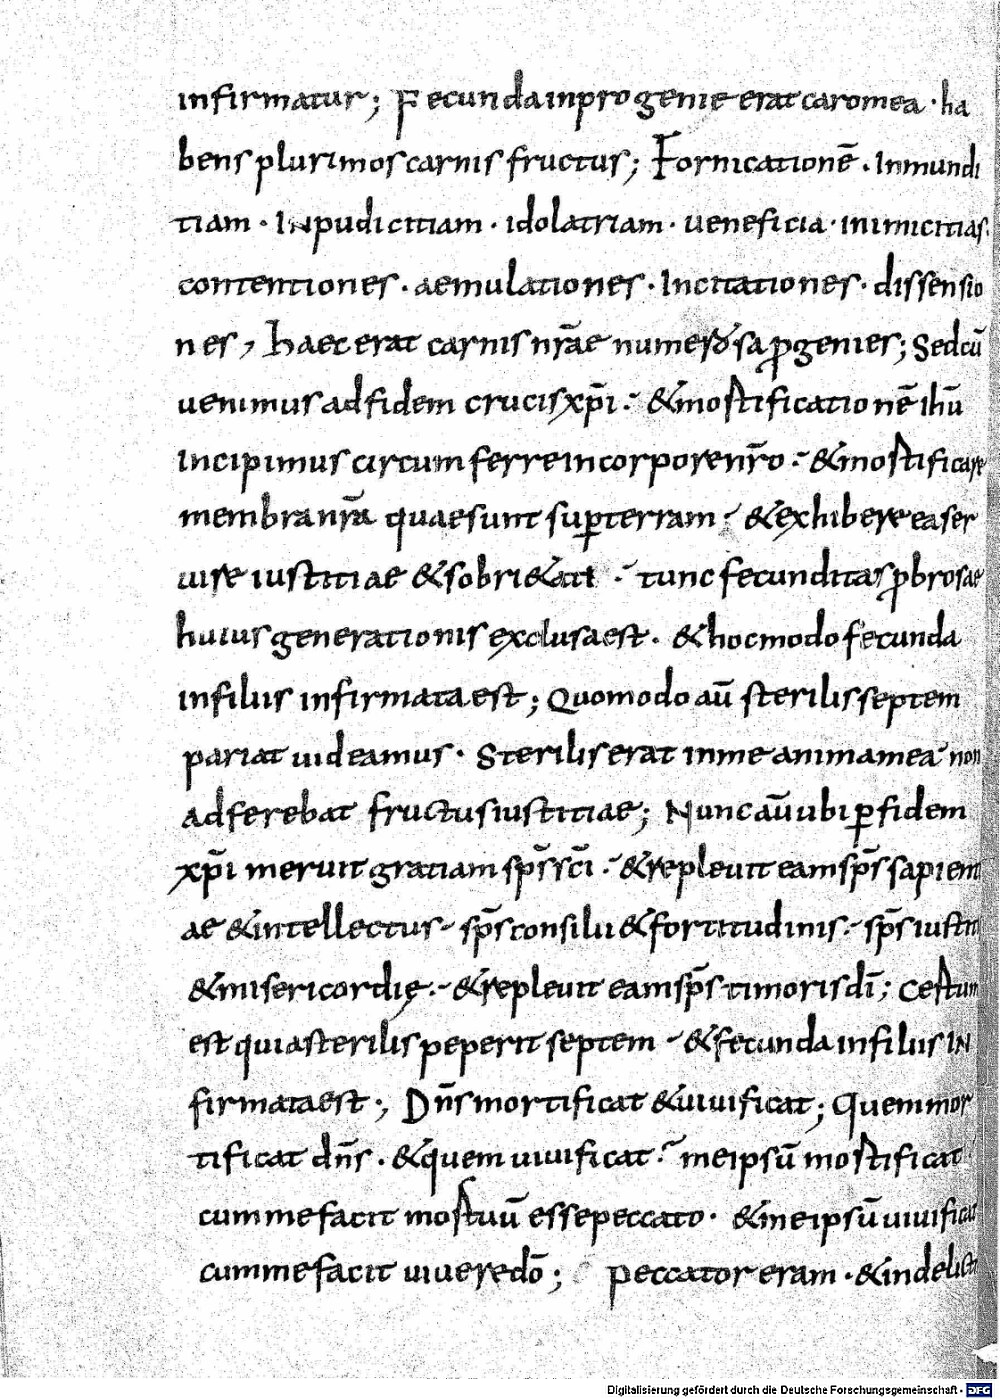 infirmatur; Fecunda in progenie erat caro mea · ha
bens plurimos carnis fructus; Fornicationē · Inmundi
tiam · INpudicitiam · idolatriam · ueneficia · inimicitias
contentiones · aemulationes · Incitationes · dissensio
nes, haec erat carnis nr̄ae numerosa ꝓgenies; Sed cū
uenimus ad fidem crucis xp̄i · & mortificationē ihū
Incipimus circumferre in corpore nr̄o · & mortificare
membra nr̄a quae sunt sup̱ terram · & exhibere ea ser
uire iustitiae & sobri&ati · tunc fecunditas ꝓbrosae
huius generationis exclusa est · & hoc modo fecunda
in filiis infirmata est; Quomodo aū sterilis septem
pariat uideamus · Sterilis erat in me anima mea non
adferebat fructus iustitiae; Nunc aū ubi ꝑ fidem
xp̄i meruit gratiam sp̄s sc̄i · & repleuit eam sp̄s sapienti
ae & intellectus · sp̄s consilii & fortitudinis · sp̄s iustiti
& misericordię · & repleuit eam sp̄s timoris dī; Certum
est quia sterilis peperit septem · & fecunda in filiis IN
firmata est; Dn̄s mortificat & uiuificat; Quem mor
tificat dn̄s · & quem uiuificat · me ipsū mortificat
cum me facit mortuū esse peccato · & me ipsū uiuificat
cum me facit uiuere dō; peccator eram · & in delicti
Digitalisierung gefördert durch die Deutsche Forschungsgemeinschaft - DFG